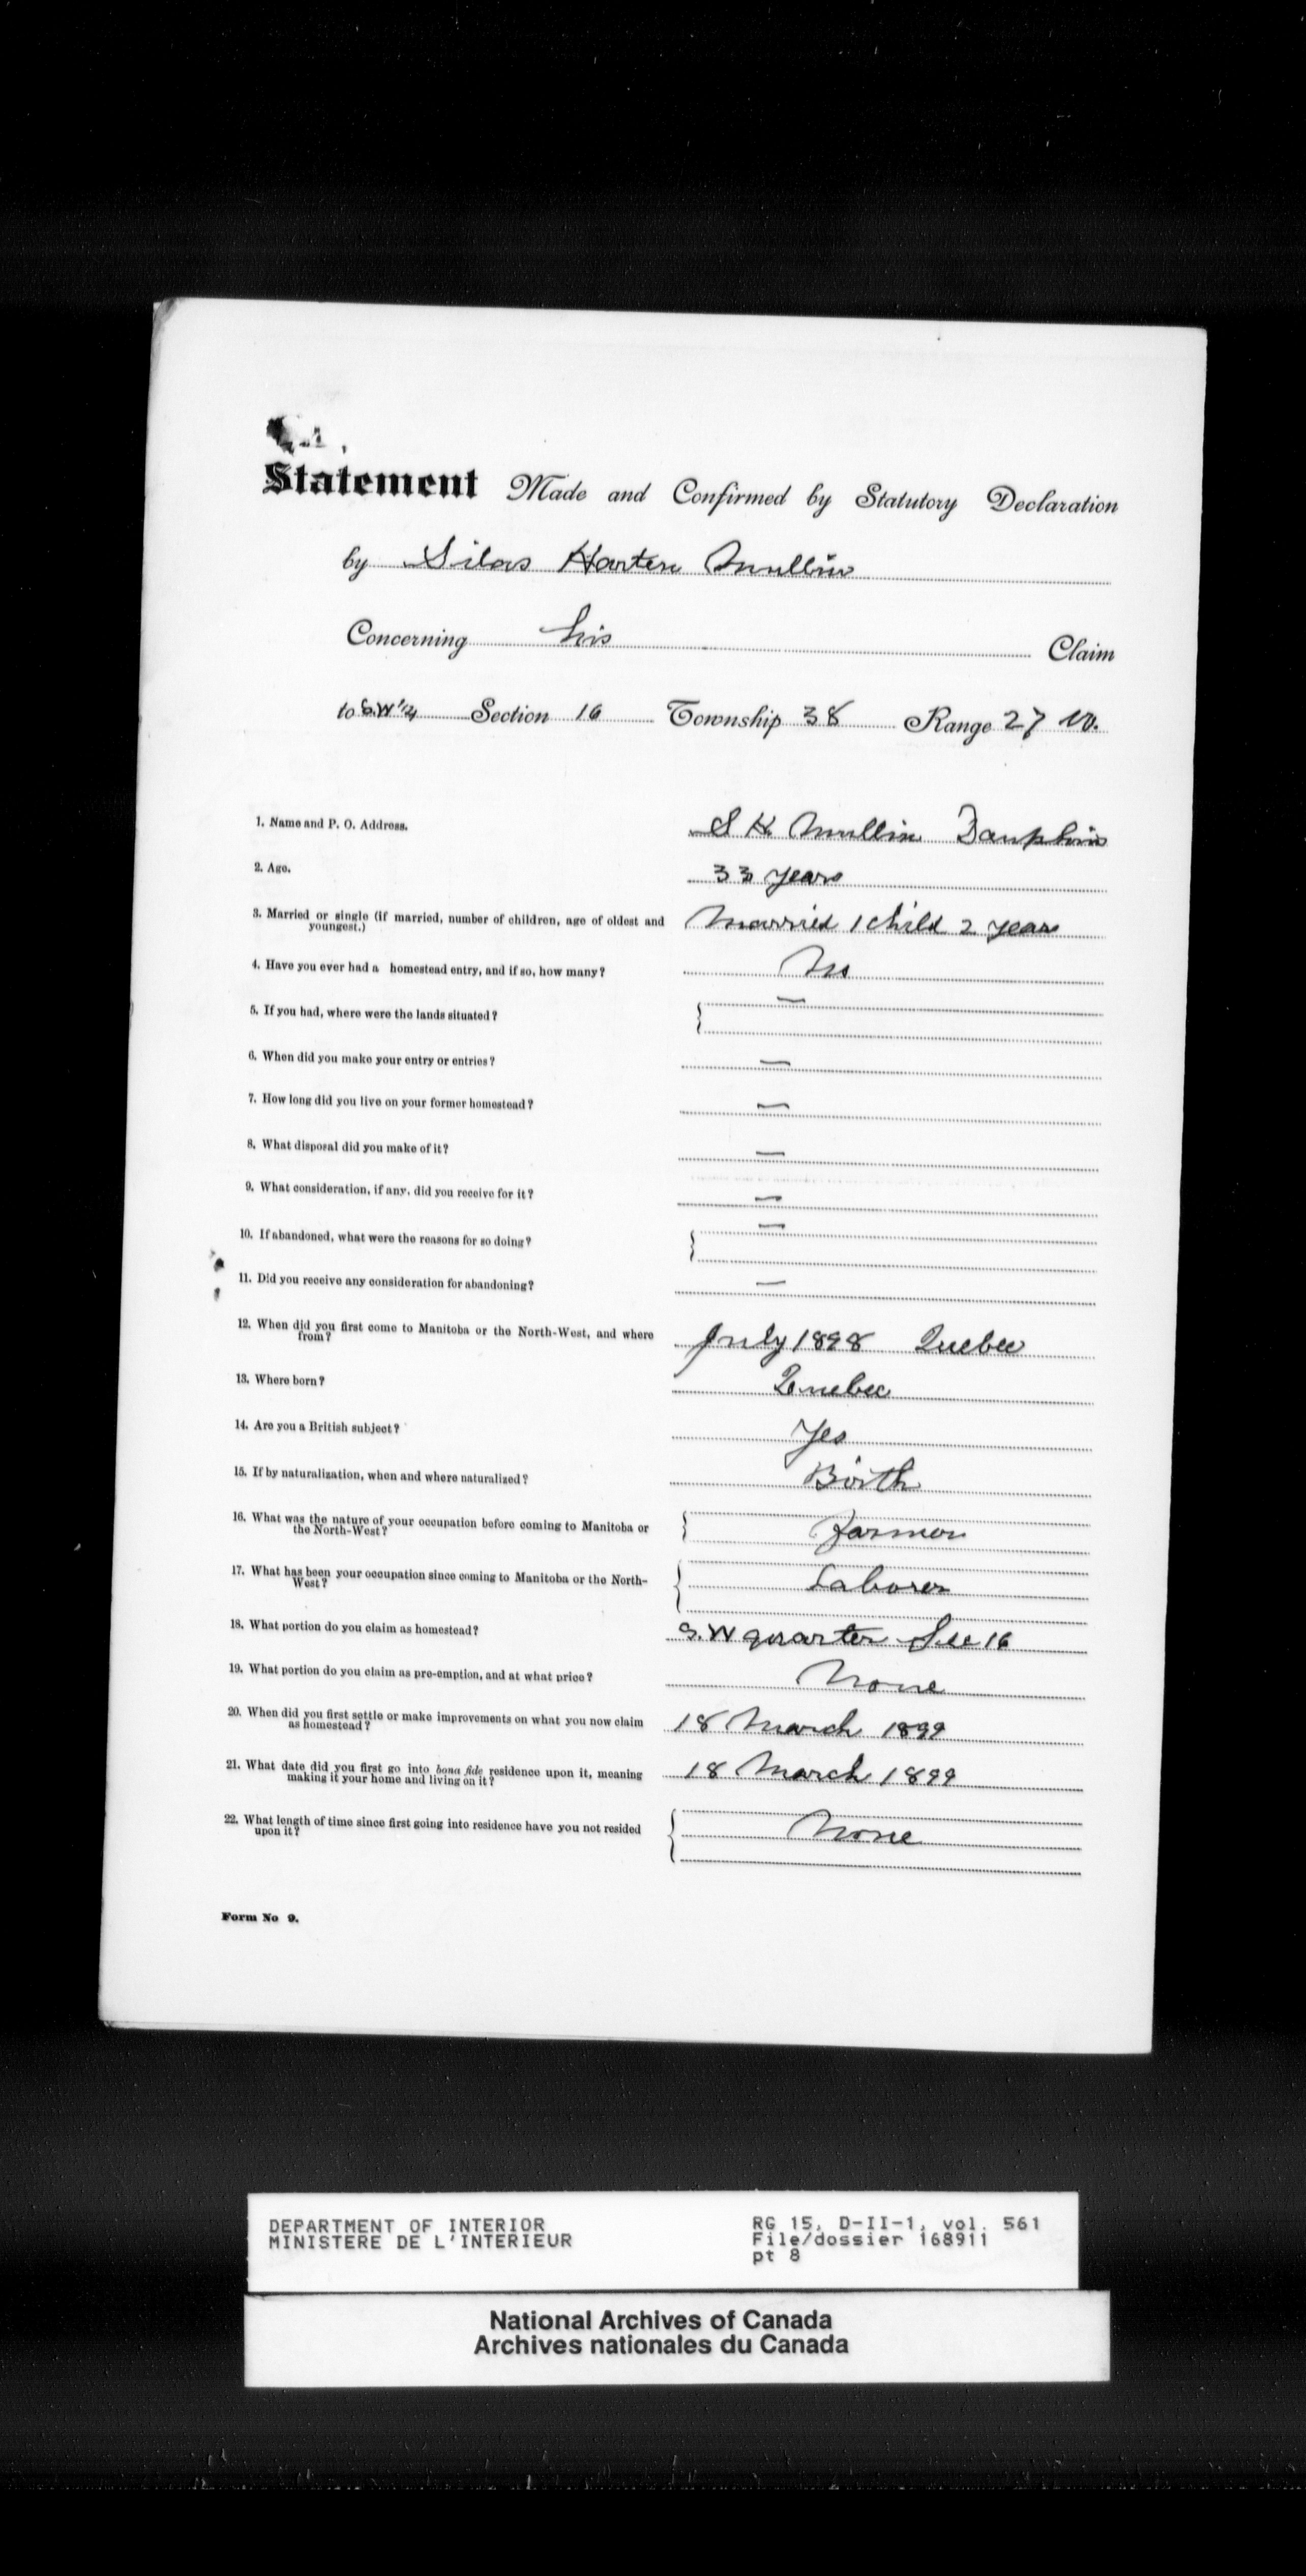 Statement Made and Confirmed by Statutory Declaration
by Silas Harten Mullin
Concerning his Claim
to S.W 1/4 Section 16 Township 38 Range 27 W.
1. Name and P. O. Address. S H Mullin Dauphin
2. Age. 33 years
3. Married or single (if married, number of children, age of oldest and Married 1 child 2 years
youngest.)
4. Have you ever had a homestead entry, and if so, how many? No
5. If you had, where were the lands situated? —
6. When did you make your entry or entries? —
7. How long did you live on your former homestead? —
8. What disposal did you make of it? —
9. What consideration, if any, did you receive for it? —
10. If abandoned, what were the reasons for so doing? —
11. Did you receive any consideration for abandoning? —
12. When did you first come to Manitoba or the North-West, and where July 1898 Quebec
from?
13. Where born? Quebec
14. Are you a British subject? Yes
15. If by naturalization, when and where naturalized? Birth
16. What was the nature of your occupation before coming to Manitoba or Farmer
the North-West?
17. What has been your occupation since coming to Manitoba or the North- Laborer
West?
18. What portion do you claim as homestead? S.W quarter Sec 16
19. What portion do you claim as pre-emption, and at what price? None
20. When did you first settle or make improvements on what you now claim 18 March 1899
as homestead?
21. What date did you first go into bona fide residence upon it, meaning 18 March 1899
making it your home and living on it?
22. What length of time since first going into residence have you not resided None
upon it?
Form No 9.
DEPARTMENT OF INTERIOR RG 15, D-II-1, vol. 561
MINISTERE DE L'INTERIEUR File/dossier 168911
pt 8
National Archives of Canada
Archives nationales du Canada